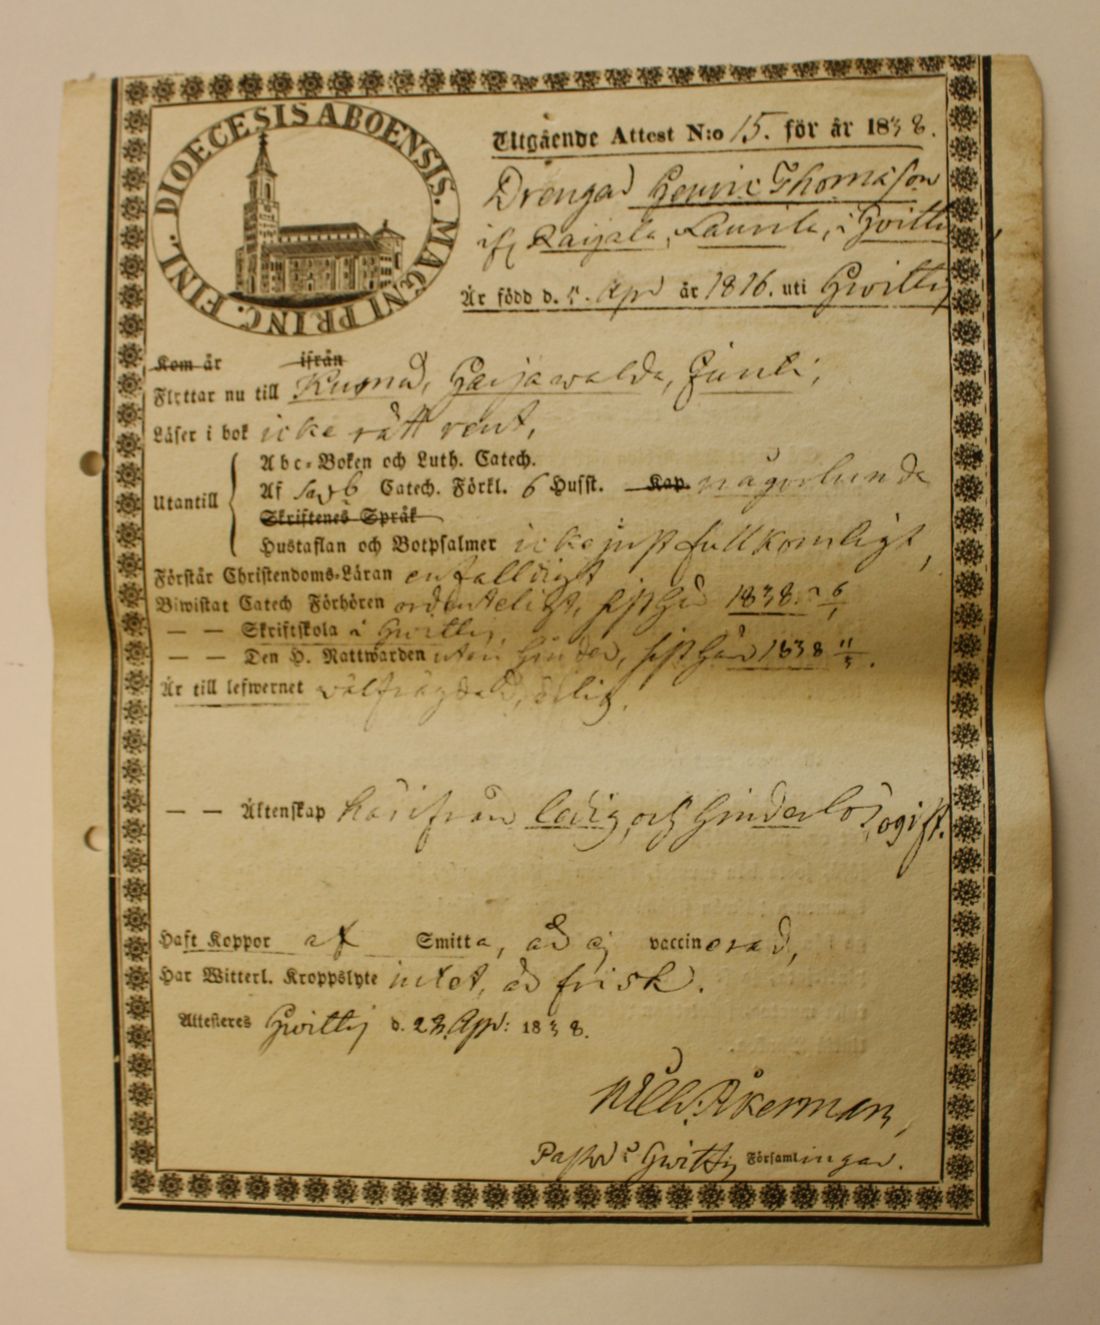 DIOECESIS ABOENSIS. MAGNI PRINC. FINL.
Utgående Attest N:o 15. för år 1838.
Drengen Henric Thomasson
ifr Raijala, Laurila, i Hvittis,
Är född d. 5. Apr år 1816. uti Hvittis
Kom år ifrån
Flyttar nu till Kumo, Harjawalda,
Läser i bok icke rätt rent,
Abc-Boken och Luth. Catech.
Utantill
Af Catech. Förkl. 6 Husst. Kap. någorlunda
Skriftenes Språk
Hustaflan och Botpsalmer icke just fullkomligt,
Förstår Christendoms-Läran enfalldigt
Biwistat Catech Förhören ordenteligt, sist här 1838.
— — Skriftskola i Hvittis,
— — Den H. Nattwarden utan hinder, sist här 1838 11/3.
Är till lefwernet wälfrägdad, ärlig,
— — Äktenskap härifrån ledig och hinderlös, ogift.
Haft Koppor af Smitta, är ej vaccinerad,
Har Witterl. Kroppslyte intet, är frisk.
Attesteres Hvittis d. 28. Apr: 1838.
Åkerman,
Past i Hvittis Församlingar.